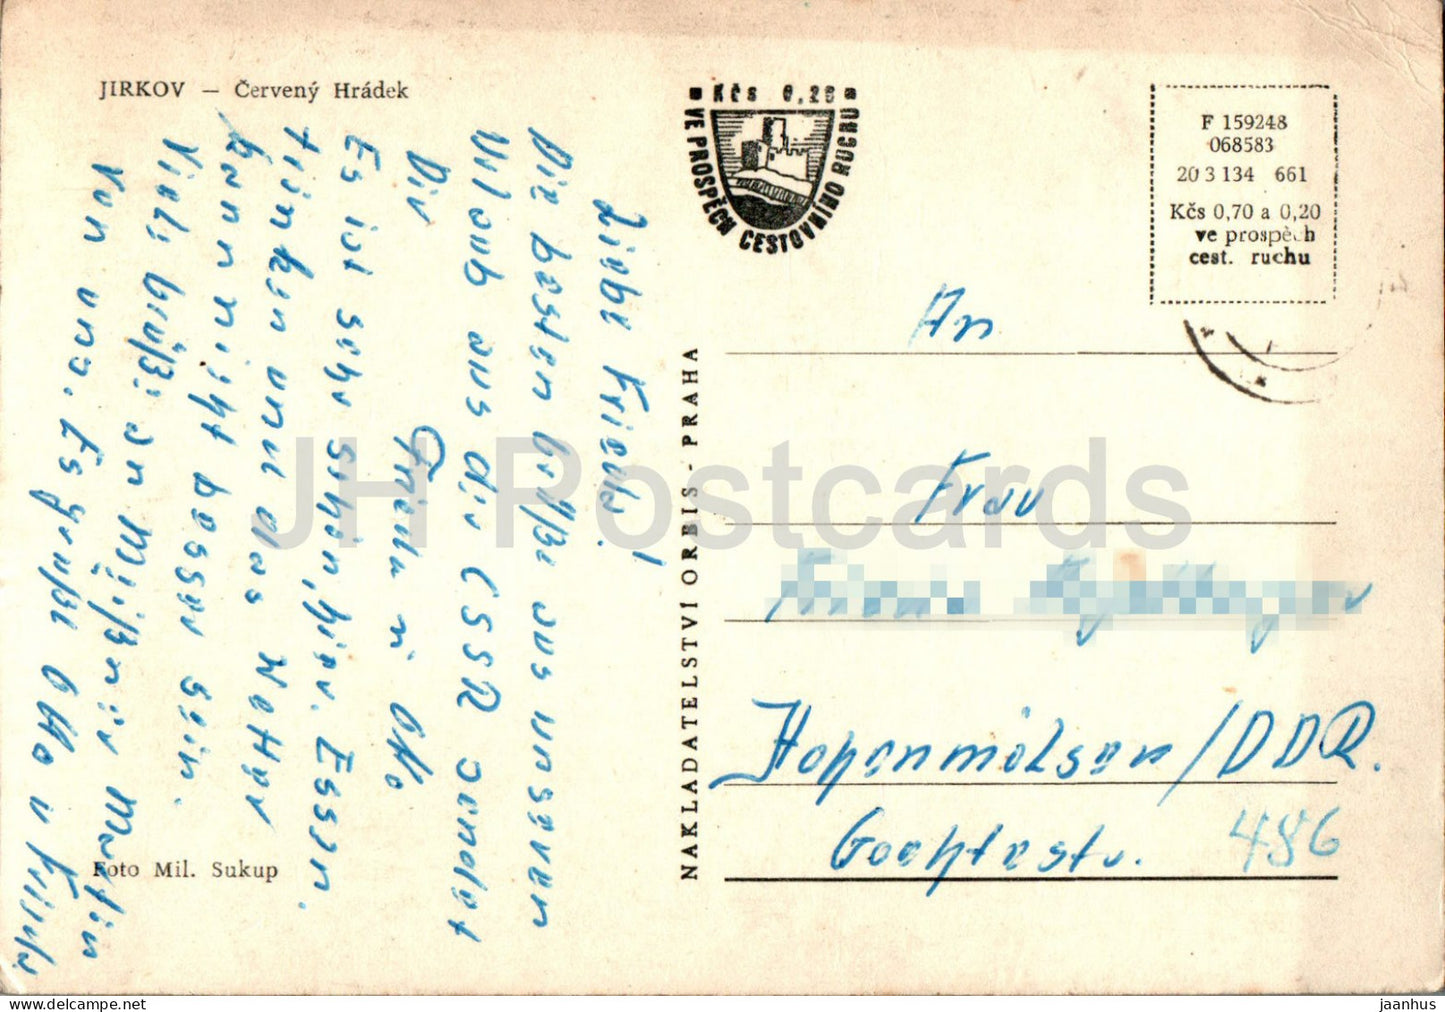 JIRKOV — Červený Hrádek
Kčs 0,20
VE PROSPĚCH CESTOVNÍHO RUCHU
F 159248
068583
20 3 134 661
Kčs 0,70 a 0,20
ve prospěch
cest. ruchu
Liebe Frieda!
Die besten Grüße aus unseren
Urlaub aus der CSSR sendet
Dir
Frieda u Otto
Es ist sehr schön, hier. Essen.
trinken und das Wetter
kann nicht besser sein.
Viele Grüße an
von uns. Es grüßt Otto u Frieda
An
Frau
Hohenmölsen/DDR.
486
NAKLADATELSTVÍ ORBIS - PRAHA
Foto Mil. Sukup
JH Postcards
jaanhus www.delcampe.net